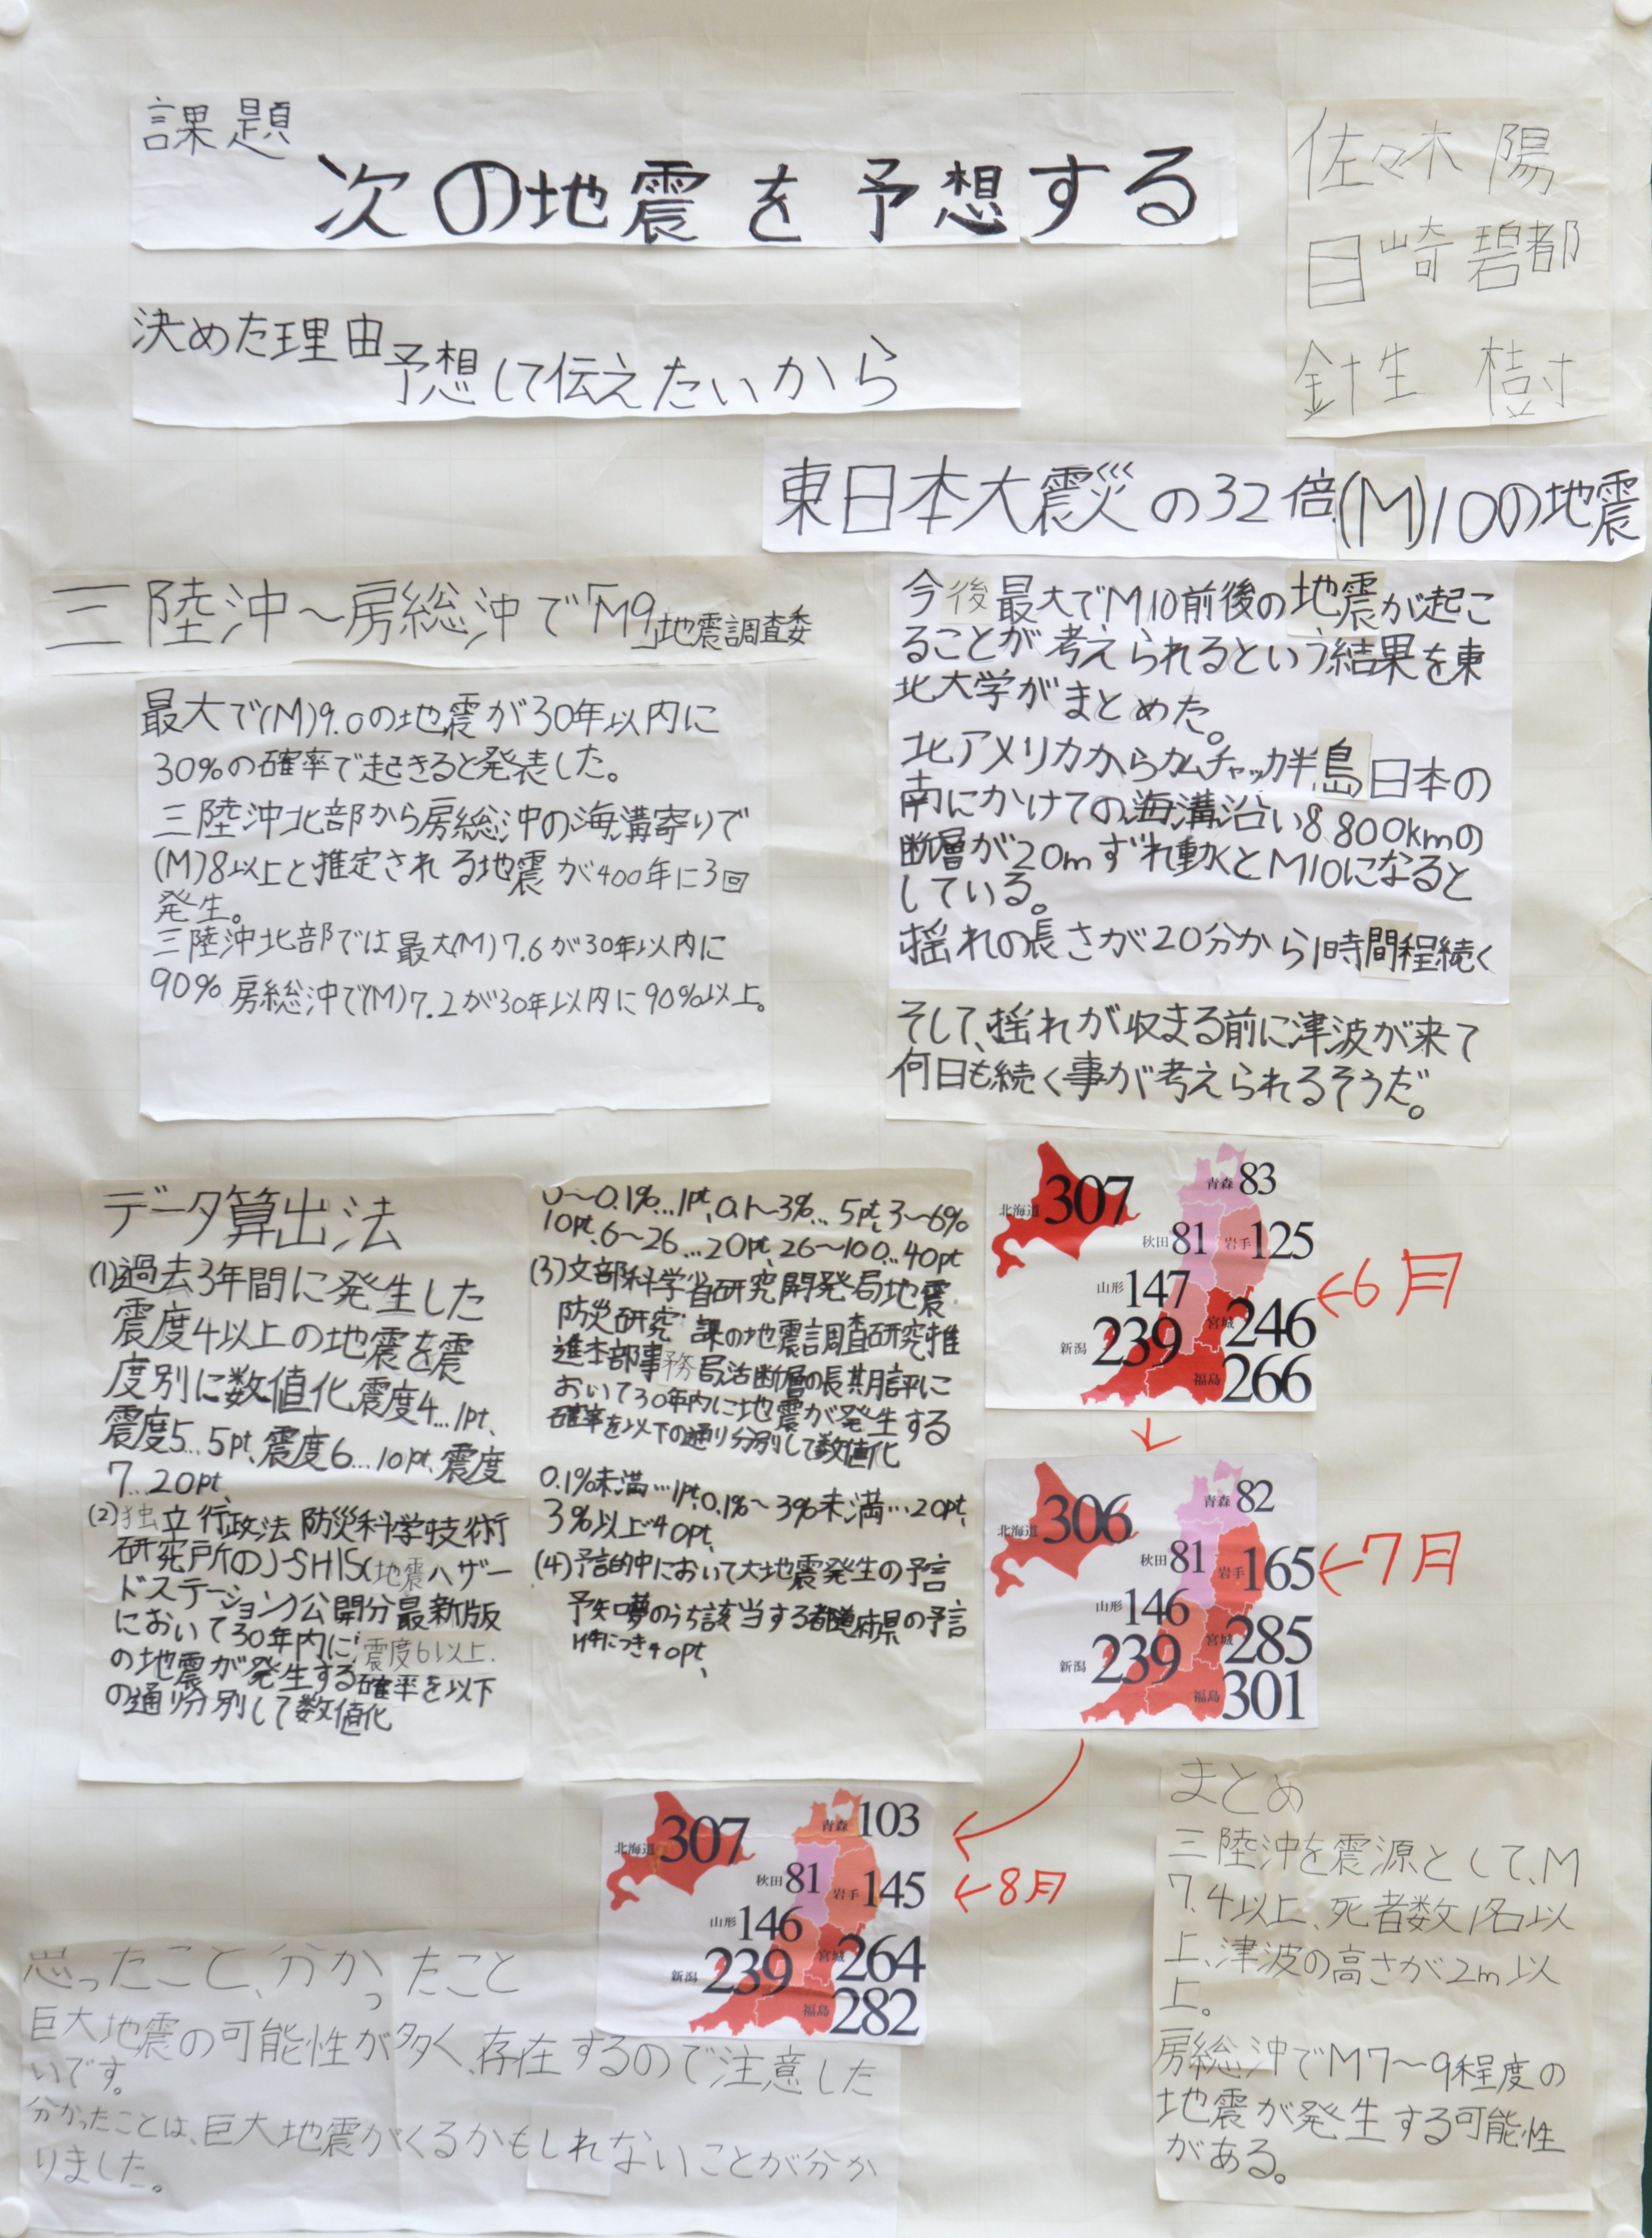 課題
次の地震を予想する
佐々木 陽
目崎碧都
針生 樹
決めた理由
予想して伝えたいから
東日本大震災の32倍(M)10の地震
三陸沖〜房総沖で「M9」地震調査委
最大で(M)9.0の地震が30年以内に
30%の確率で起きると発表した。
三陸沖北部から房総沖の海溝寄りで
(M)8以上と推定される地震が400年に3回
発生。
三陸沖北部では最大(M)7.6が30年以内に
90% 房総沖で(M)7.2が30年以内に90%以上。
今後最大でM10前後の地震が起こ
ることが考えられるという結果を東
北大学がまとめた。
北アメリカからカムチャッカ半島日本の
南にかけての海溝沿い8.800kmの
断層が20mずれ動くとM10になると
している。
揺れの長さが20分から1時間程続く
そして、揺れが収まる前に津波が来て
何日も続く事が考えられるそうだ。
データ算出法
(1)過去3年間に発生した
震度4以上の地震を震
度別に数値化震度4...1pt、
震度5...5pt、震度6...10pt、震度
7...20pt、
(2)独立行政法防災科学技術
研究所のJ-SHIS(地震ハザー
ドステーション)公開分最新版
において30年内に震度6以上
の地震が発生する確率を以下
の通り分別して数値化
0〜0.1%...1pt、0.1〜3%...5pt、3〜6%
10pt、6〜26...20pt、26〜100...40pt
(3)文部科学省研究開発局地震
防災研究課の地震調査研究推
進本部事務局活断層の長期評に
おいて30年内に地震が発生する
確率を以下の通り分別して数値化
0.1%未満...1pt、0.1%〜3%未満...20pt、
3%以上40pt、
(4)予言的中において大地震発生の予言
予知夢のうち該当する都道府県の予言
1件につき40pt、
北海道 307
青森 83
秋田 81
岩手 125
山形 147
宮城 246
新潟 239
福島 266
←6月
北海道 306
青森 82
秋田 81
岩手 165
山形 146
宮城 285
新潟 239
福島 301
←7月
北海道 307
青森 103
秋田 81
岩手 145
山形 146
宮城 264
新潟 239
福島 282
←8月
まとめ
三陸沖を震源として、M
7.4以上、死者数1名以
上、津波の高さが2m以
上。
房総沖でM7〜9程度の
地震が発生する可能性
がある。
思ったこと、分かったこと
巨大地震の可能性が多く、存在するので注意した
いです。
分かったことは、巨大地震がくるかもしれないことが分か
りました。